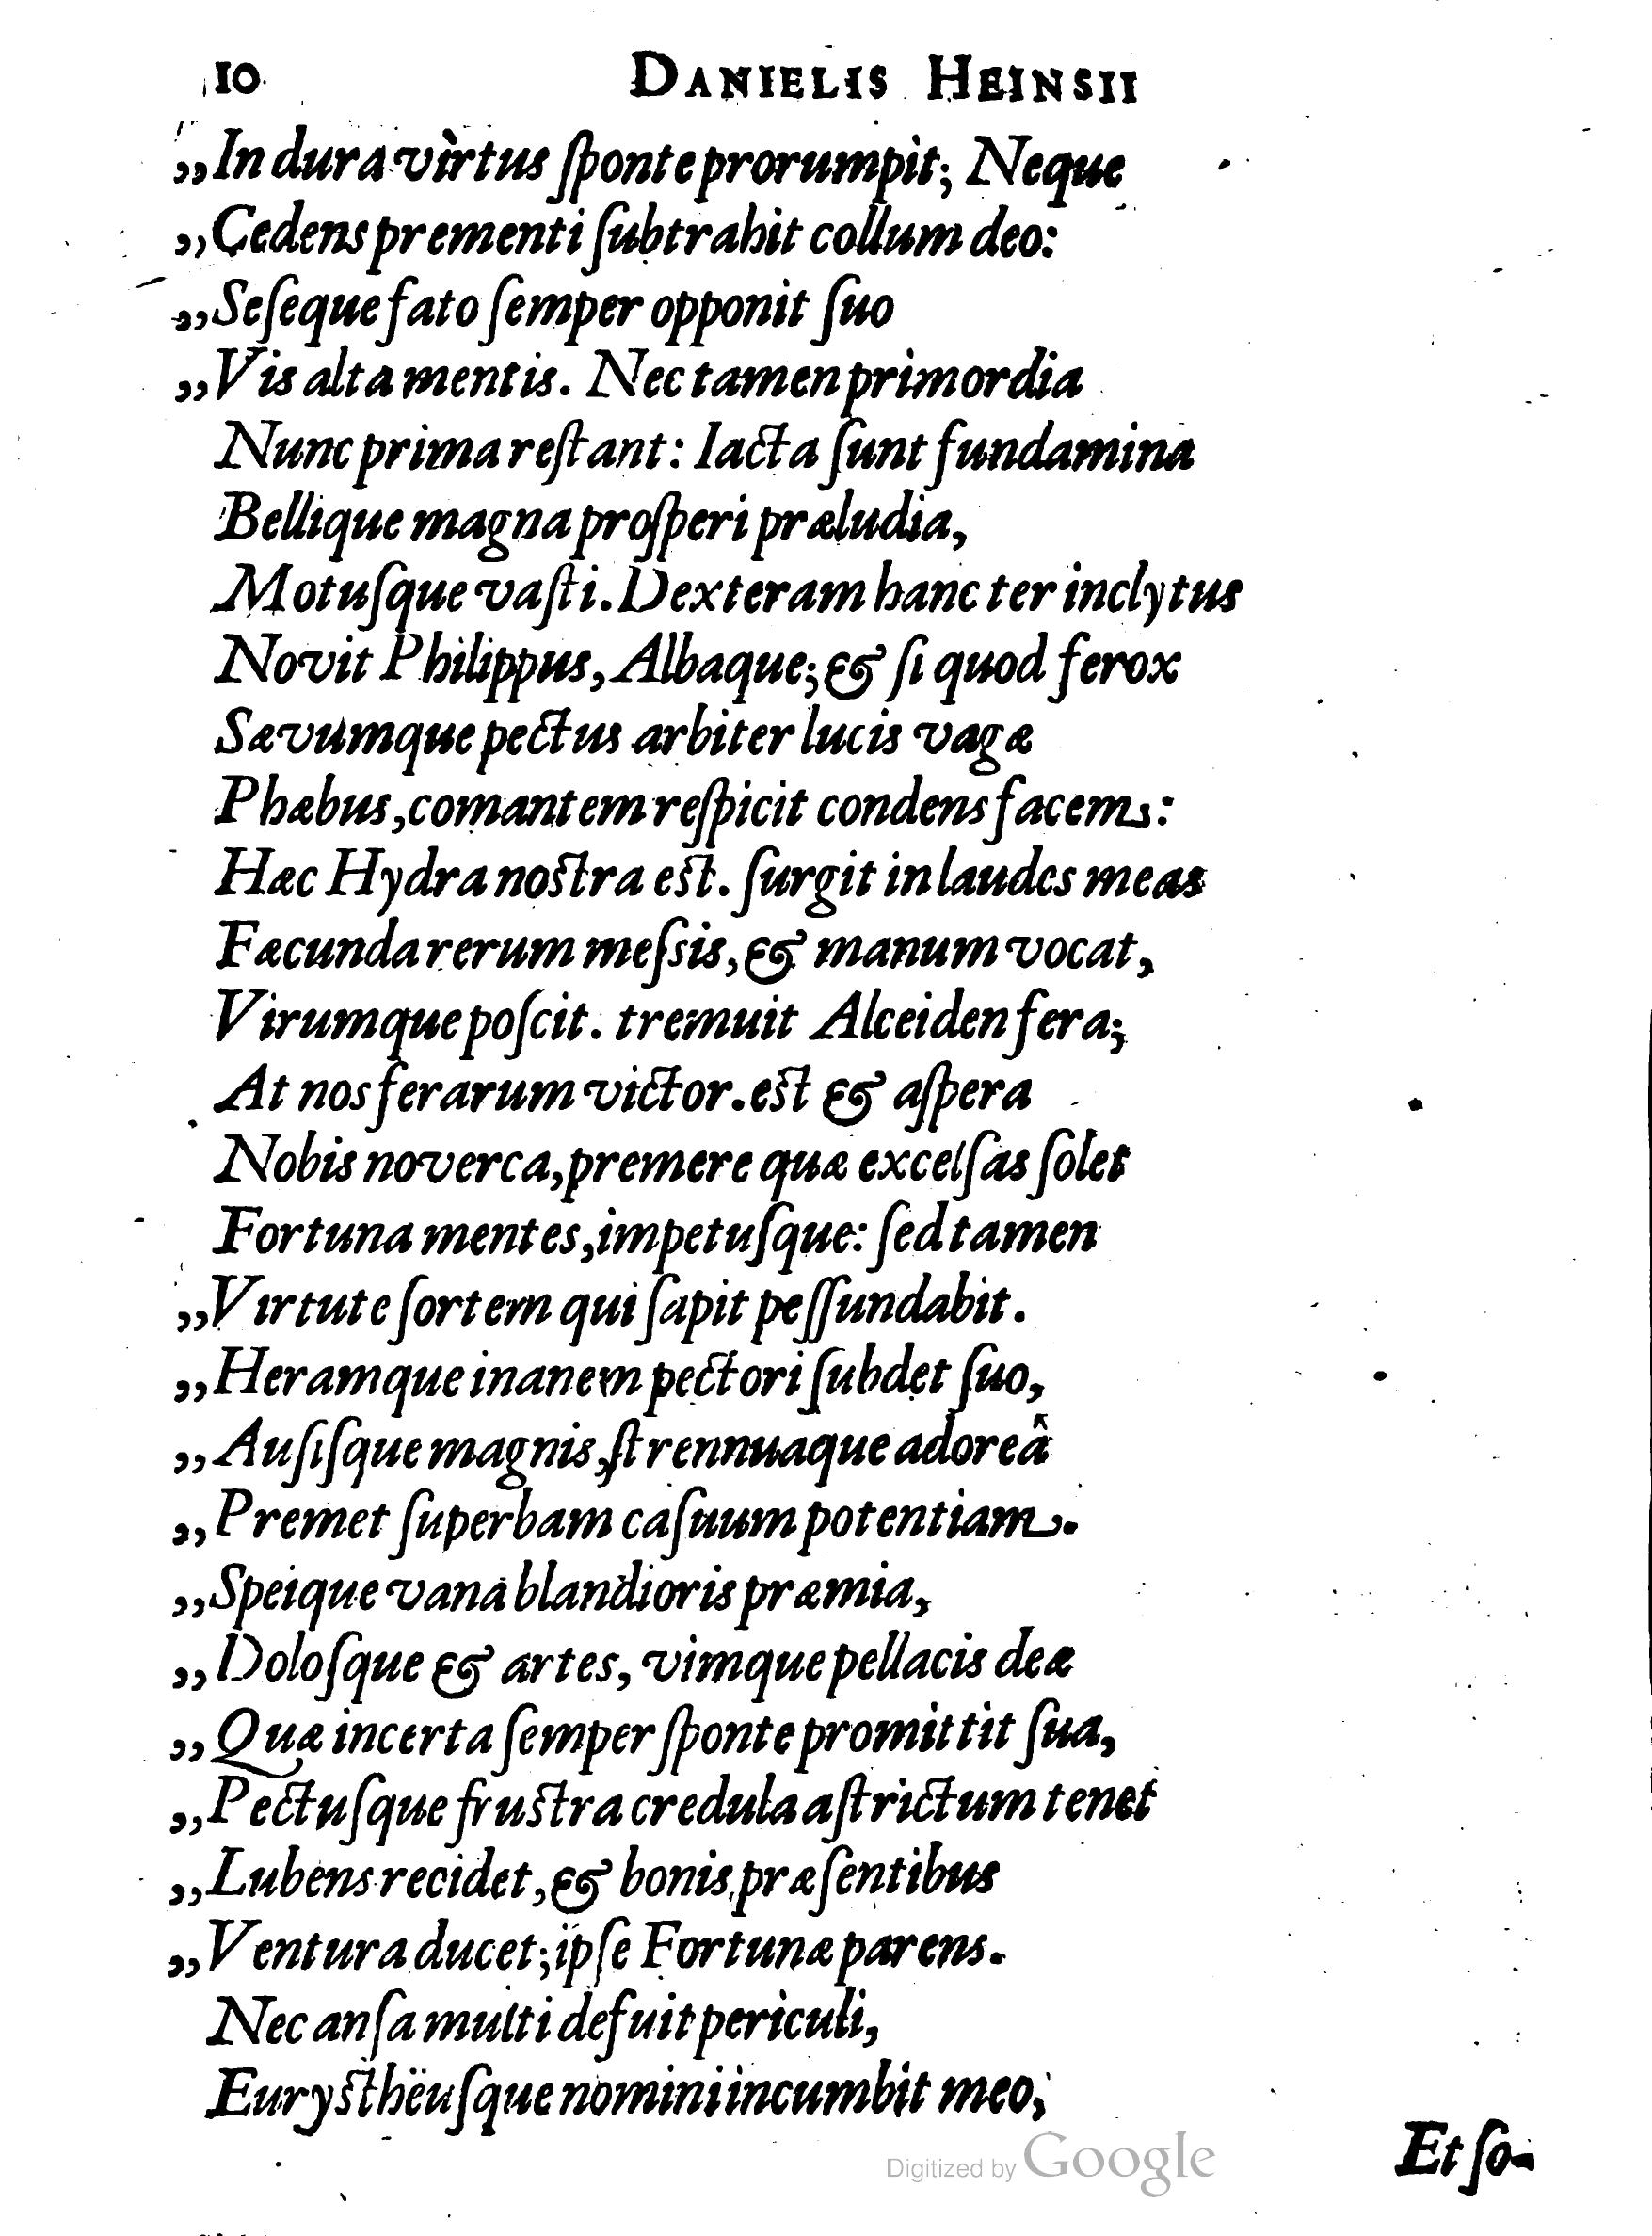 10 DANIELIS HEINSII
„In dura vìrtus ſponte prorumpit; Neque
„Cedens prementi ſubtrahit collum deo:
„Seſeque fato ſemper opponit ſuo
„Vis alta mentis. Nec tamen primordia
Nunc prima reſtant: Iacta ſunt fundamina
Bellique magna proſperi præludia,
Motuſque vaſti. Dexteram hanc ter inclytus
Novit Philippus, Albaque; & ſi quod ferox
Sævumque pectus arbiter lucis vagæ
Phæbus, comantem reſpicit condens facem:
Hæc Hydra nostra est. ſurgit in laudes meas
Fæcunda rerum meſsis, & manum vocat,
Virumque poſcit. tremuit Alceiden fera;
At nos ferarum victor. est & aſpera
Nobis noverca, premere quæ excelſas ſolet
Fortuna mentes, impetuſque: ſed tamen
„Virtute ſortem qui ſapit peſſundabit.
„Heramque inanem pectori ſubdet ſuo,
„Auſiſque magnis, ſtrennuaque adoreâ
„Premet ſuperbam caſuum potentiam.
„Speique vana blandioris præmia,
„Doloſque & artes, vimque pellacis deæ
„Quæ incerta ſemper ſponte promittit ſua,
„Pectuſque frustra credula aſtrictum tenet
„Lubens recidet, & bonis præſentibus
„Ventura ducet; ipſe Fortunæ parens.
Nec anſa multi defuit pericŭli,
Eurysthëuſque nomini incumbit meo,
Et ſo-
Digitized by Google